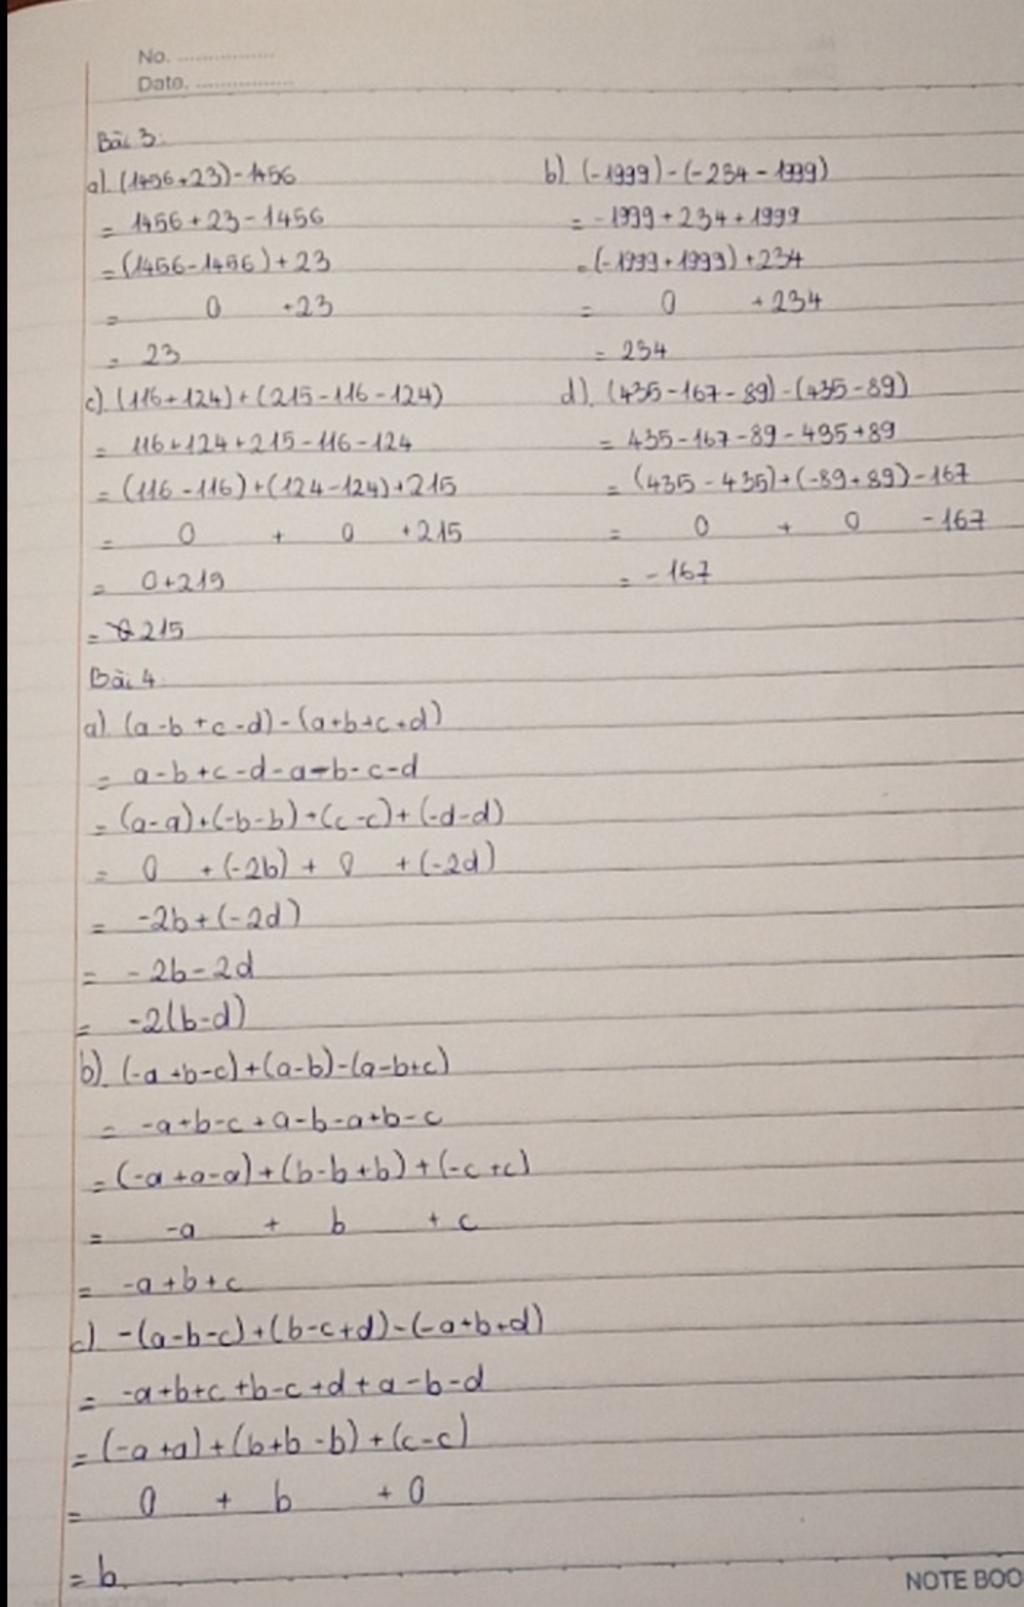 No.
Date.
Bài 3:
a) (1456+23)-1456
= 1456+23-1456
=(1456-1456)+23
= 0 +23
= 23
b) (-1999)-(-234-1999)
= -1999+234+1999
=(-1999+1999)+234
= 0 +234
= 234
c) (116+124)+(215-116-124)
= 116+124+215-116-124
= (116-116)+(124-124)+215
= 0 + 0 +215
= 0+215
= 215
d) (435-167-89)-(435-89)
= 435-167-89-435+89
= (435-435)+(-89+89)-167
= 0 + 0 -167
= -167
Bài 4
a) (a-b+c-d)-(a+b+c+d)
= a-b+c-d-a-b-c-d
= (a-a)+(-b-b)+(c-c)+(-d-d)
= 0 +(-2b)+ 0 +(-2d)
= -2b+(-2d)
= -2b-2d
= -2(b-d)
b) (-a+b-c)+(a-b)-(a-b+c)
= -a+b-c+a-b-a+b-c
= (-a+a-a)+(b-b+b)+(-c+c)
= -a + b + c
= -a+b+c
c) -(a-b-c)+(b-c+d)-(-a+b+d)
= -a+b+c+b-c+d+a-b-d
= (-a+a)+(b+b-b)+(c-c)
= 0 + b + 0
= b
NOTE BOO